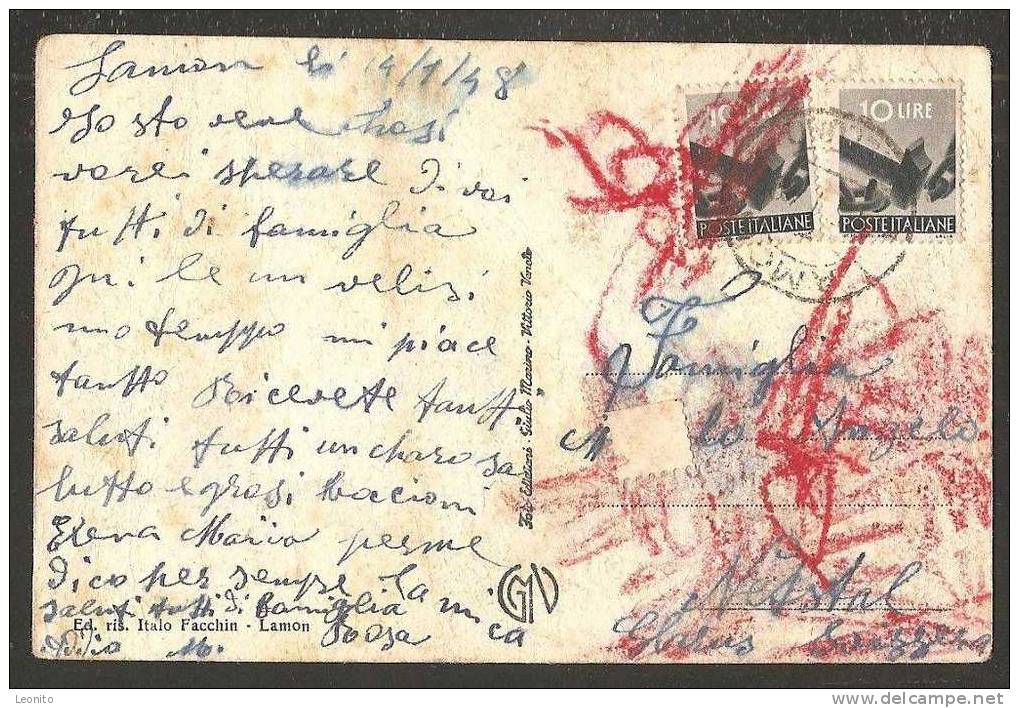 Lamon li 4/1/48
Io sto bene chosi
vorei sperare di voi
tutti di famiglia
qui le un velisi
mo temppo mi piace
tantto Ricevete tantti
saluti tutti un charo sa
lutto e grosi bacioni
Elena Maria perme
dico per sempre la mica
saluti tutti di famiglia
Rosa
Ddio M.
Ed. ris. Italo Facchin - Lamon
Fot. Edizioni - Giulio Marino - Vittorio Veneto
GMV
10 LIRE
POSTE ITALIANE
10 LIRE
POSTE ITALIANE
Famiglia
lo Angelo
Netstal
Glarus Svizzera
Leonito
delcampe.net